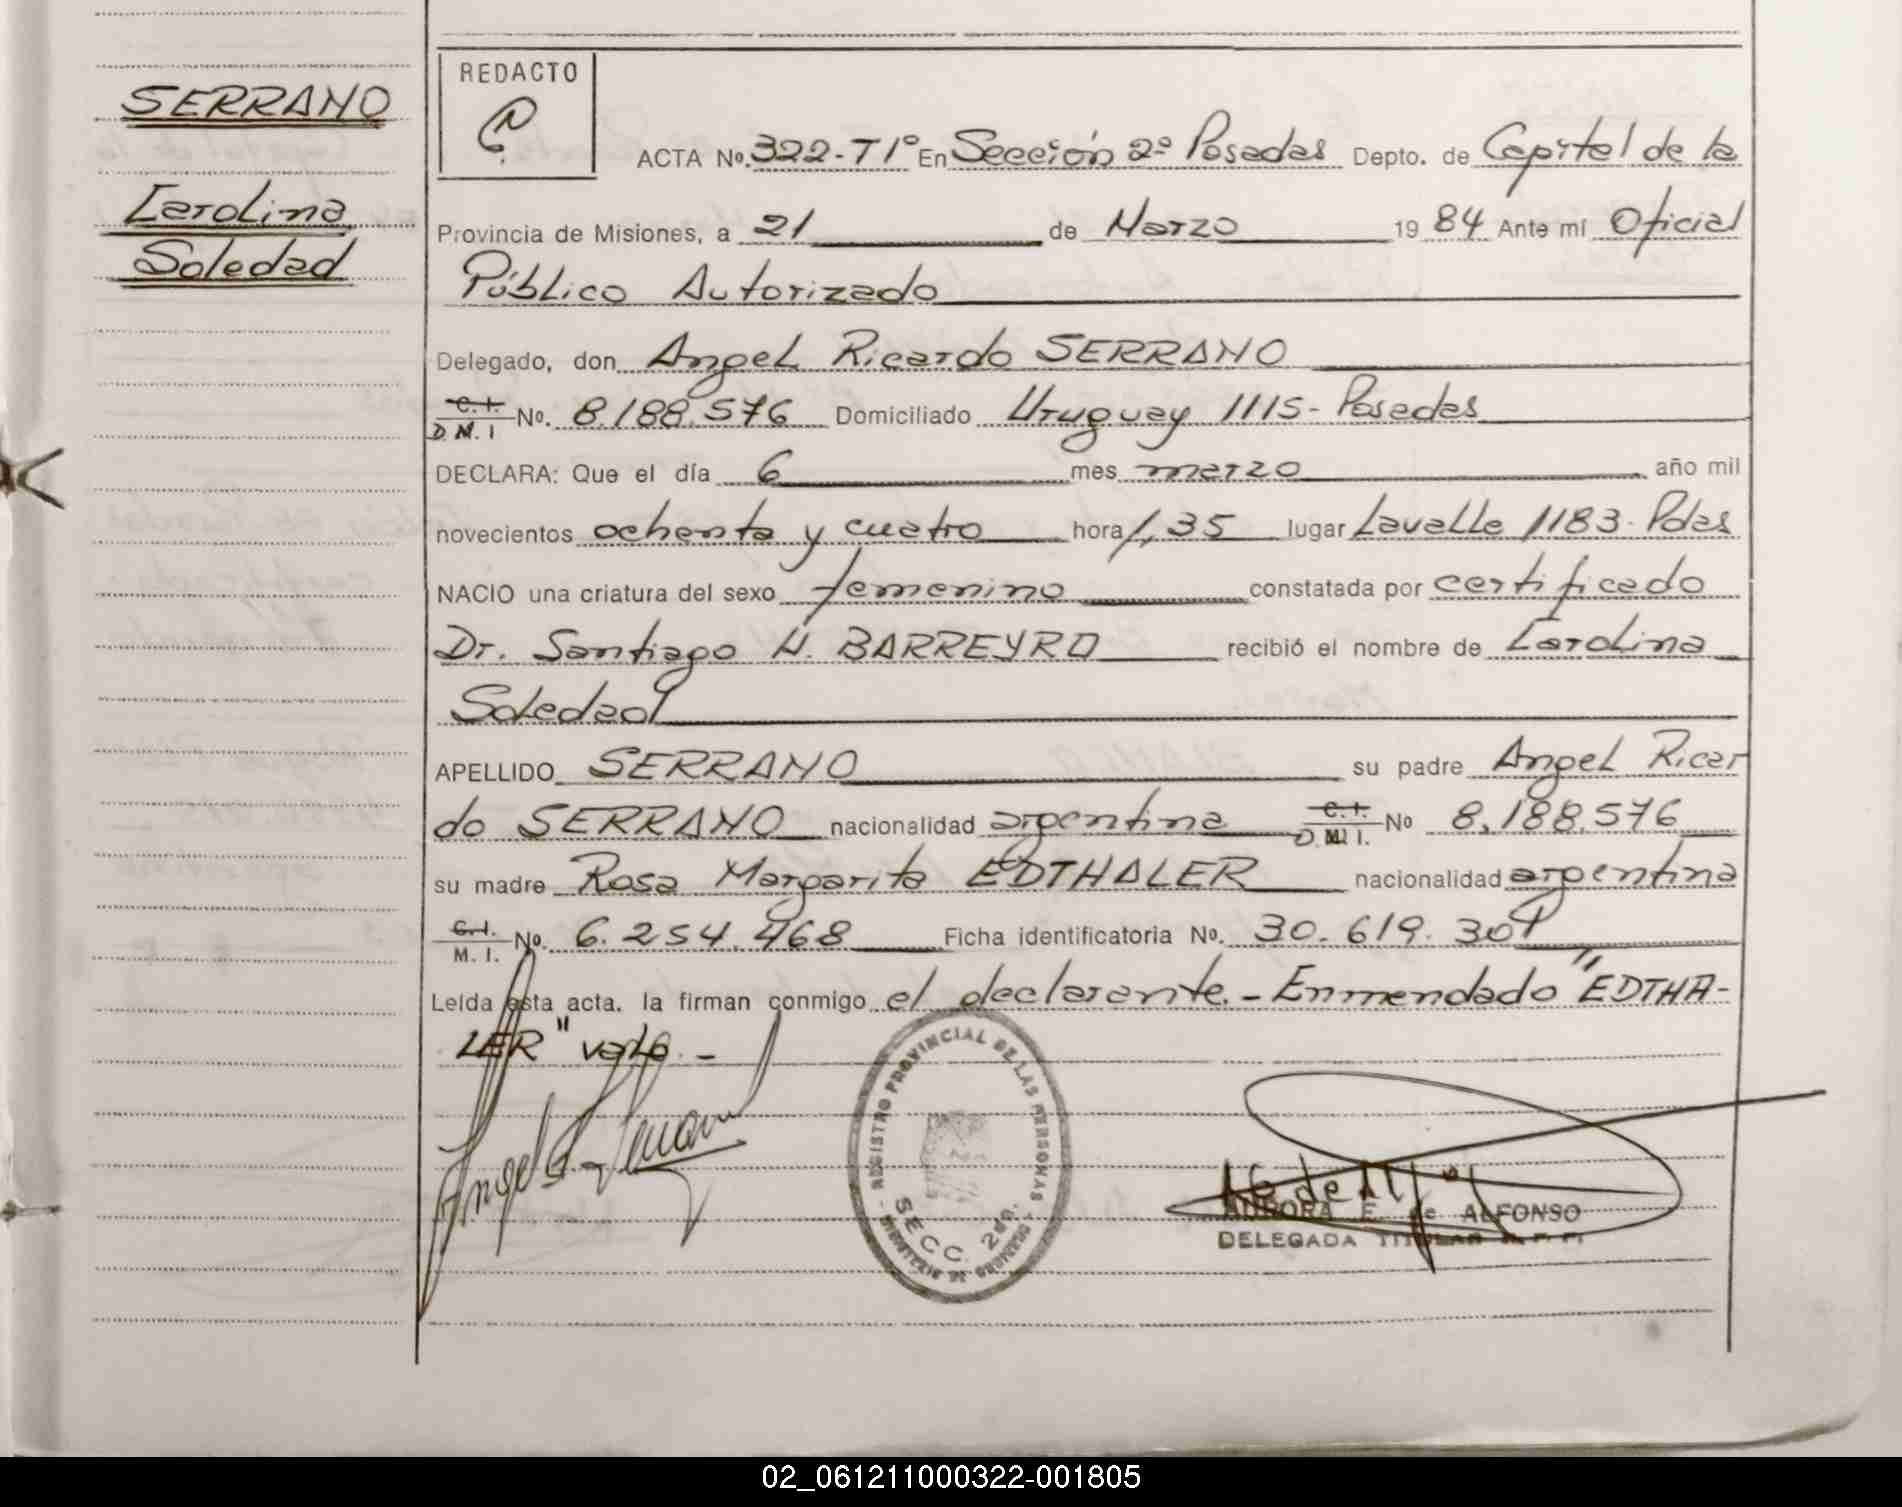 SERRANO
Carolina
Soledad
REDACTO
ACTA No. 322-T1° En Sección 2º Posadas Depto. de Capital de la
Provincia de Misiones, a 21 de Marzo 1984 Ante mí Oficial
Público Autorizado
Delegado, don Angel Ricardo SERRANO
C.I.
D.M.I No. 8.188.576 Domiciliado Uruguay 1115- Posadas
DECLARA: Que el día 6 mes marzo año mil
novecientos ochenta y cuatro hora 1,35 lugar Lavalle 1183- Pdas
NACIO una criatura del sexo femenino constatada por certificado
Dr. Santiago H. BARREYRO recibió el nombre de Carolina
Soledad
APELLIDO SERRANO su padre Angel Ricar
do SERRANO nacionalidad argentina C.I.
D.M.I. No 8,188.576
su madre Rosa Margarita EDTHALER nacionalidad argentina
C.I.
M. I. No. 6.254.468 Ficha identificatoria No. 30.619.301
Leída esta acta. la firman conmigo el declarante.- Enmendado "EDTHA-
LER" vale.-
REGISTRO PROVINCIAL DE LAS PERSONAS
SECC. 2da.
MINISTERIO DE GOBIERNO
AURORA E. de ALFONSO
DELEGADA TITULAR R. P. P.
02_061211000322-001805